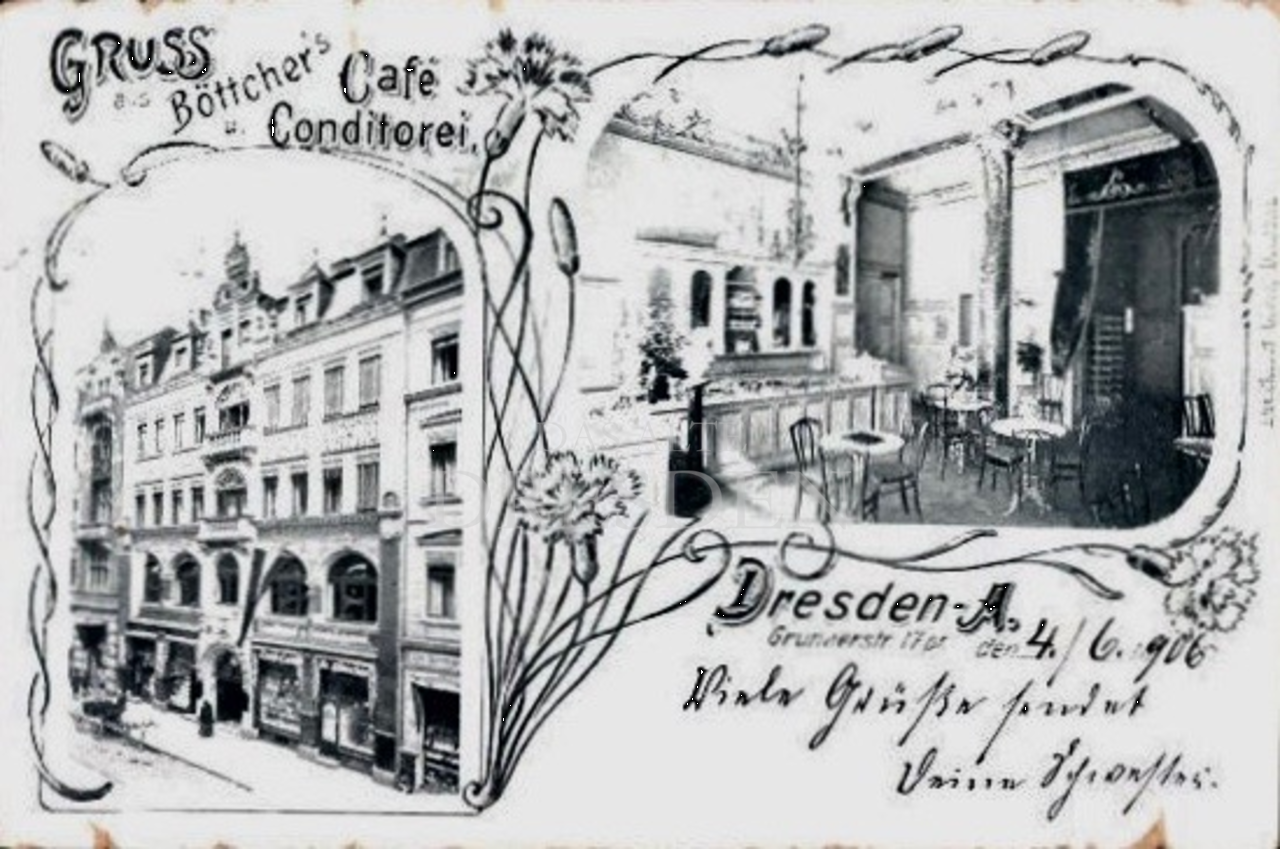 GRUSS
aus Böttcher's Café
u. Conditorei.
Dresden-A.
Grunaerstr. 17 pt. den 4./6. 1906
Viele Grüße sendet
Deine Schwester.